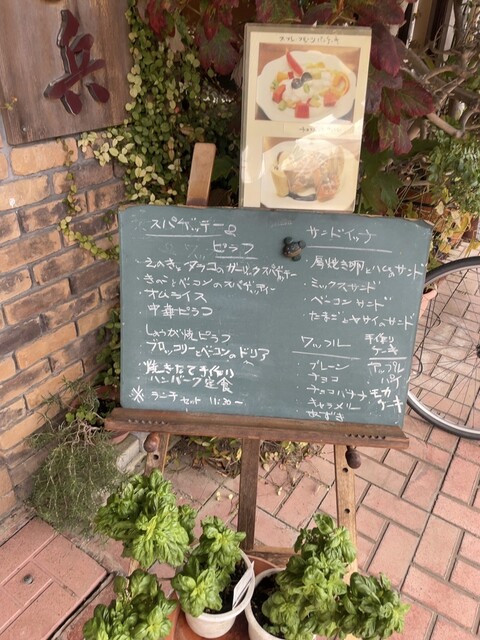 兵
スパゲッテー&
ピラフ
・えのきとタラコのガーリックスパゲッテー
・きのことベーコンのスパゲッティー
・オムライス
・中華ピラフ
しょうが焼ピラフ
ブロッコリーとベーコンのドリア
焼きたて手作り
ハンバーグ定食
※ ランチセット 11:30〜
サンドイッチ
・厚焼き卵とハムのサンド
・ミックスサンド
・ベーコンサンド
・たまごとヤサイのサンド
ワッフル
・プレーン
・チョコ
・チョコバナナ
・キャラメル
・あずき
手作り
ケーキ
アップル
パイ
モカ
ケーキ